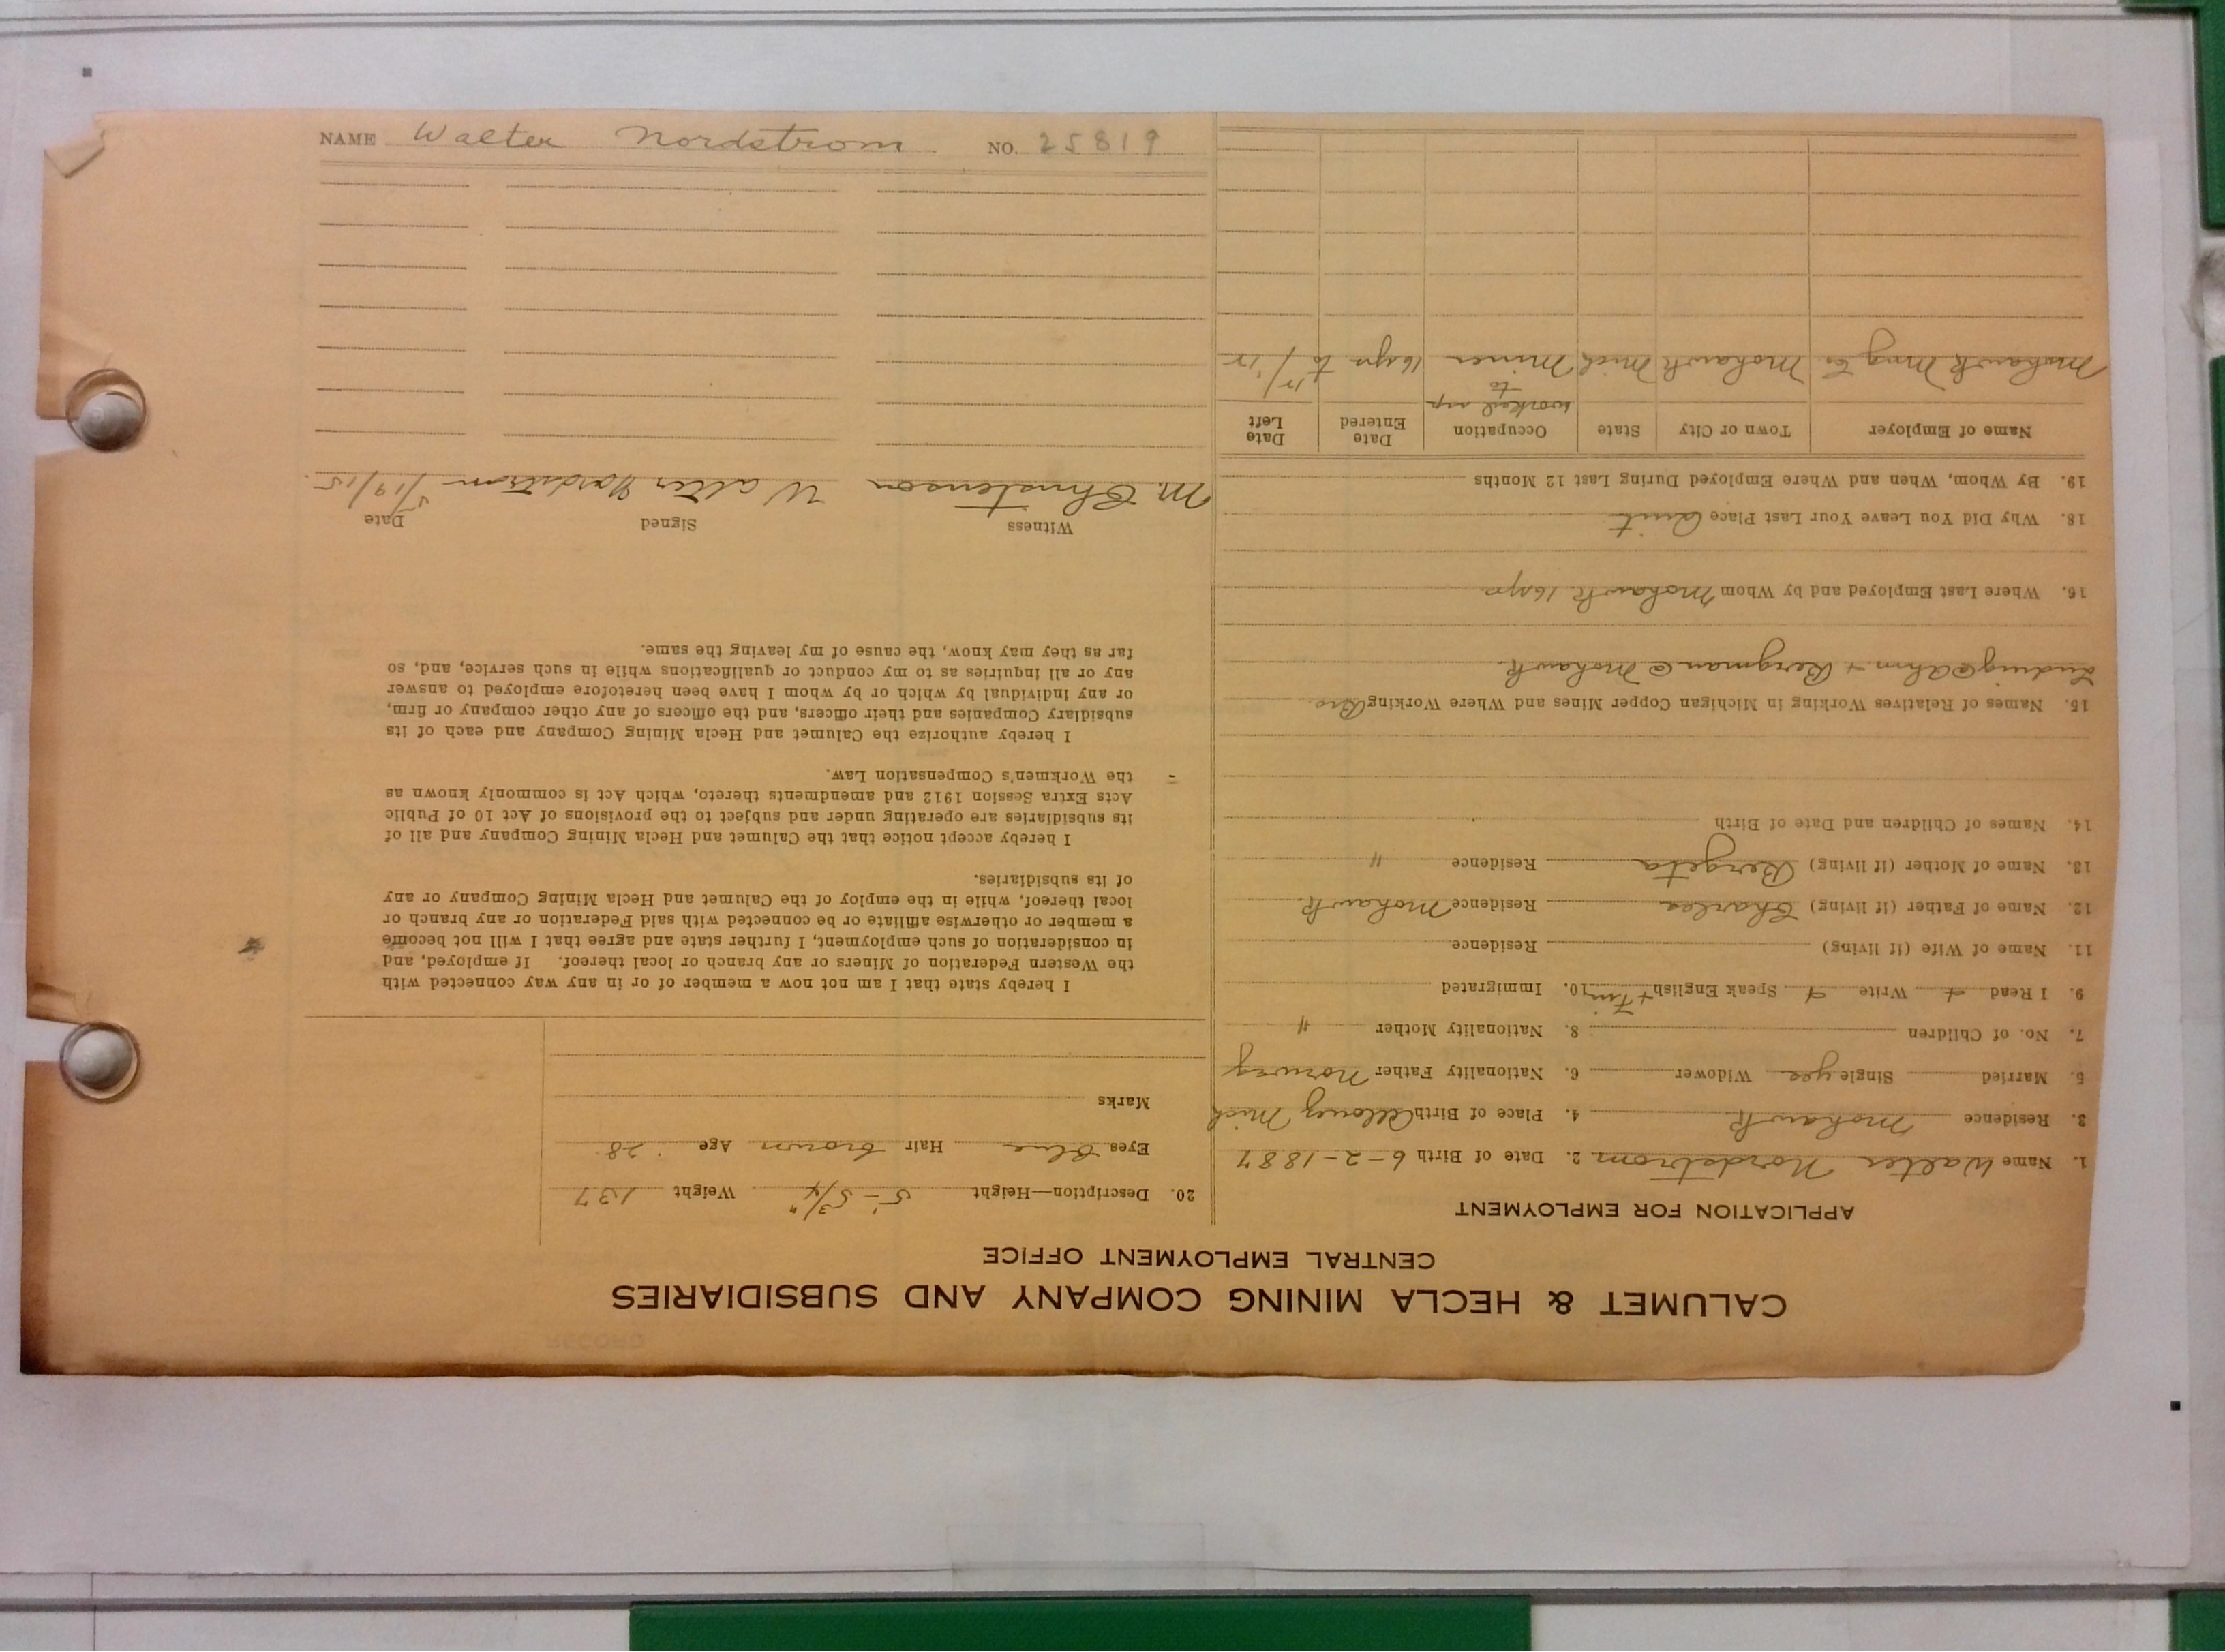 CALUMET & HECLA MINING COMPANY AND SUBSIDIARIES
CENTRAL EMPLOYMENT OFFICE
APPLICATION FOR EMPLOYMENT
1. Name Walter Nordstrom 2. Date of Birth 6-2-1887
3. Residence Mohawk 4. Place of Birth Allouez Mich
5. Married Single yes Widower 6. Nationality Father Norweg
7. No. of Children 8. Nationality Mother "
9. I Read + Write + Speak English + Fin 10. Immigrated
11. Name of Wife (if living) Residence
12. Name of Father (if living) Charles Residence Mohawk
13. Name of Mother (if living) Bergeta Residence "
14. Names of Children and Date of Birth
15. Names of Relatives Working in Michigan Copper Mines and Where Working Bro.
@ Ahm + Bergman @ Mohawk
16. Where Last Employed and by Whom Mohawk 16 yrs
18. Why Did You Leave Your Last Place Quit
19. By Whom, When and Where Employed During Last 12 Months
Name of Employer Town or City State Occupation Date Entered Date Left
worked up to
Mohawk Mng Co Mohawk Mich Miner 16 yrs to
20. Description—Height 5'-5 3/4" Weight 137
Eyes Blue Hair brown Age 28
Marks
I hereby state that I am not now a member of or in any way connected with
the Western Federation of Miners or any branch or local thereof. If employed, and
in consideration of such employment, I further state and agree that I will not become
a member or otherwise affiliate or be connected with said Federation or any branch or
local thereof, while in the employ of the Calumet and Hecla Mining Company or any
of its subsidiaries.
I hereby accept notice that the Calumet and Hecla Mining Company and all of
its subsidiaries are operating under and subject to the provisions of Act 10 of Public
Acts Extra Session 1912 and amendments thereto, which Act is commonly known as
the Workmen's Compensation Law.
I hereby authorize the Calumet and Hecla Mining Company and each of its
subsidiary Companies and their officers, and the officers of any other company or firm,
or any individual by which or by whom I have been heretofore employed to answer
any or all inquiries as to my conduct or qualifications while in such service, and, so
far as they may know, the cause of my leaving the same.
Witness Signed Date
M. Christenson Walter Nordstrom 5/19/15.
NAME Walter Nordstrom NO. 25819